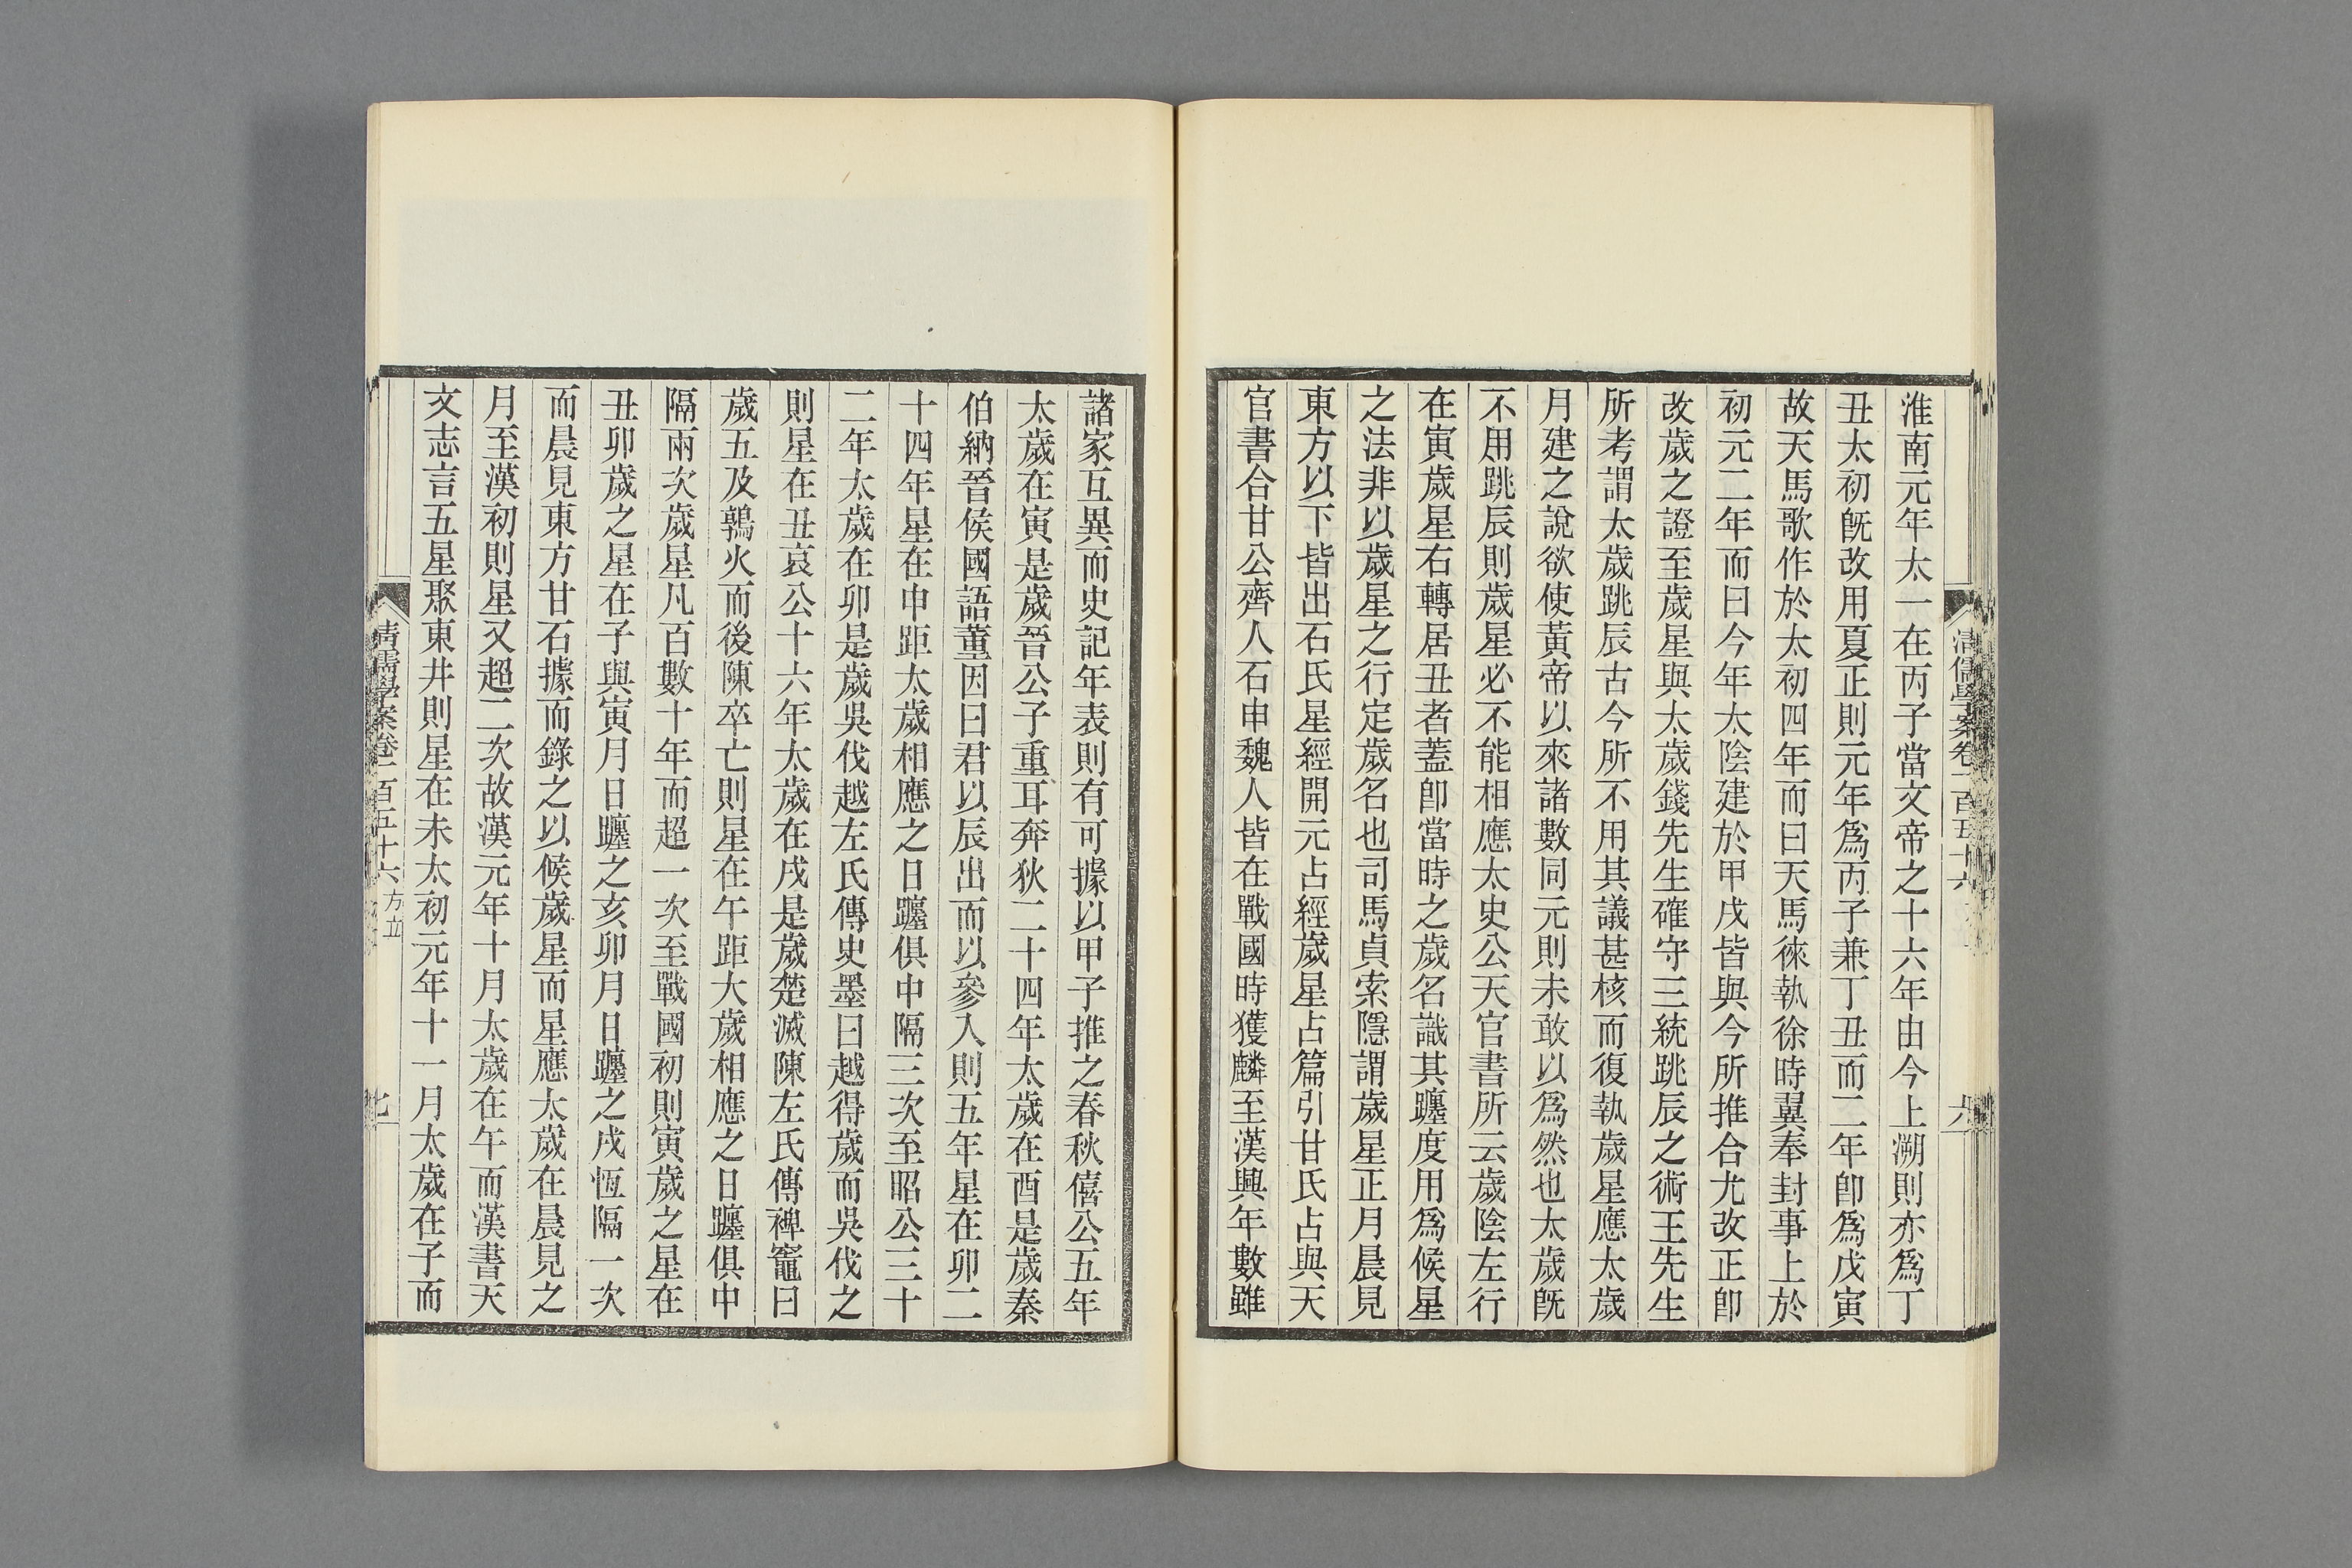 清儒學案卷一百五十六
六
淮南元年太一在丙子當文帝之十六年由今上溯則亦爲丁
丑太初旣改用夏正則元年爲丙子兼丁丑而二年卽爲戊寅
故天馬歌作於太初四年而曰天馬徠執徐時翼奉封事上於
初元二年而曰今年太陰建於甲戌皆與今所推合尤改正卽
改歲之證至歲星與太歲錢先生確守三統跳辰之術王先生
所考謂太歲跳辰古今所不用其議甚核而復執歲星應太歲
月建之說欲使黃帝以來諸數同元則未敢以爲然也太歲旣
不用跳辰則歲星必不能相應太史公天官書所云歲陰左行
在寅歲星右轉居丑者蓋卽當時之歲名識其躔度用爲候星
之法非以歲星之行定歲名也司馬貞索隱謂歲星正月晨見
東方以下皆出石氏星經開元占經歲星占篇引甘氏占與天
官書合甘公齊人石申魏人皆在戰國時獲麟至漢興年數雖
諸家互異而史記年表則有可據以甲子推之春秋僖公五年
太歲在寅是歲晉公子重耳奔狄二十四年太歲在酉是歲秦
伯納晉侯國語董因曰君以辰出而以參入則五年星在卯二
十四年星在申距太歲相應之日躔俱中隔三次至昭公三十
二年太歲在卯是歲吳伐越左氏傳史墨曰越得歲而吳伐之
則星在丑哀公十六年太歲在戌是歲楚滅陳左氏傳裨竈曰
歲五及鶉火而後陳卒亡則星在午距大歲相應之日躔俱中
隔兩次歲星凡百數十年而超一次至戰國初則寅歲之星在
丑卯歲之星在子與寅月日躔之亥卯月日躔之戌恆隔一次
而晨見東方甘石據而錄之以候歲星而星應太歲在晨見之
月至漢初則星又超二次故漢元年十月太歲在午而漢書天
文志言五星聚東井則星在未太初元年十一月太歲在子而
清儒學案卷一百五十六 方立
七